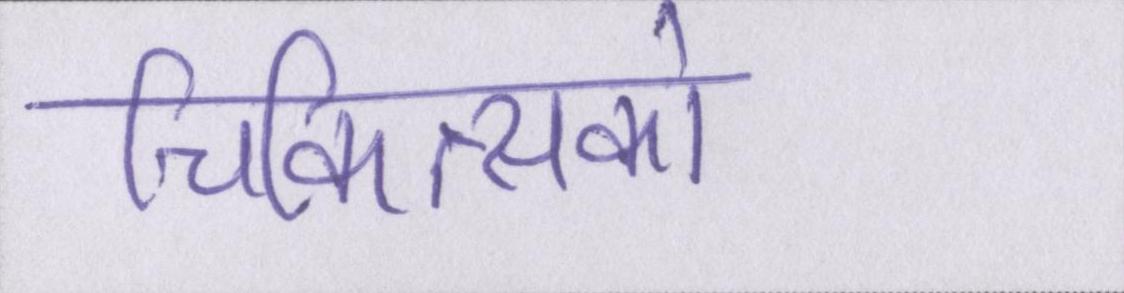 चिकित्सको